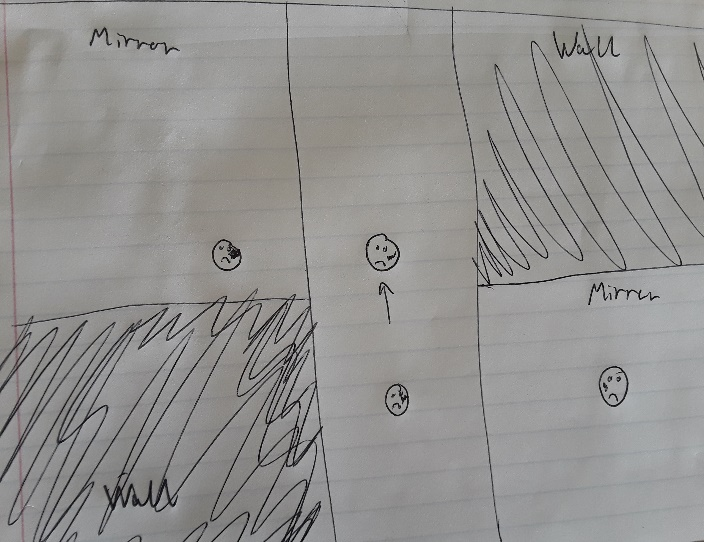 Mirror
Wall
Mirror
Wall